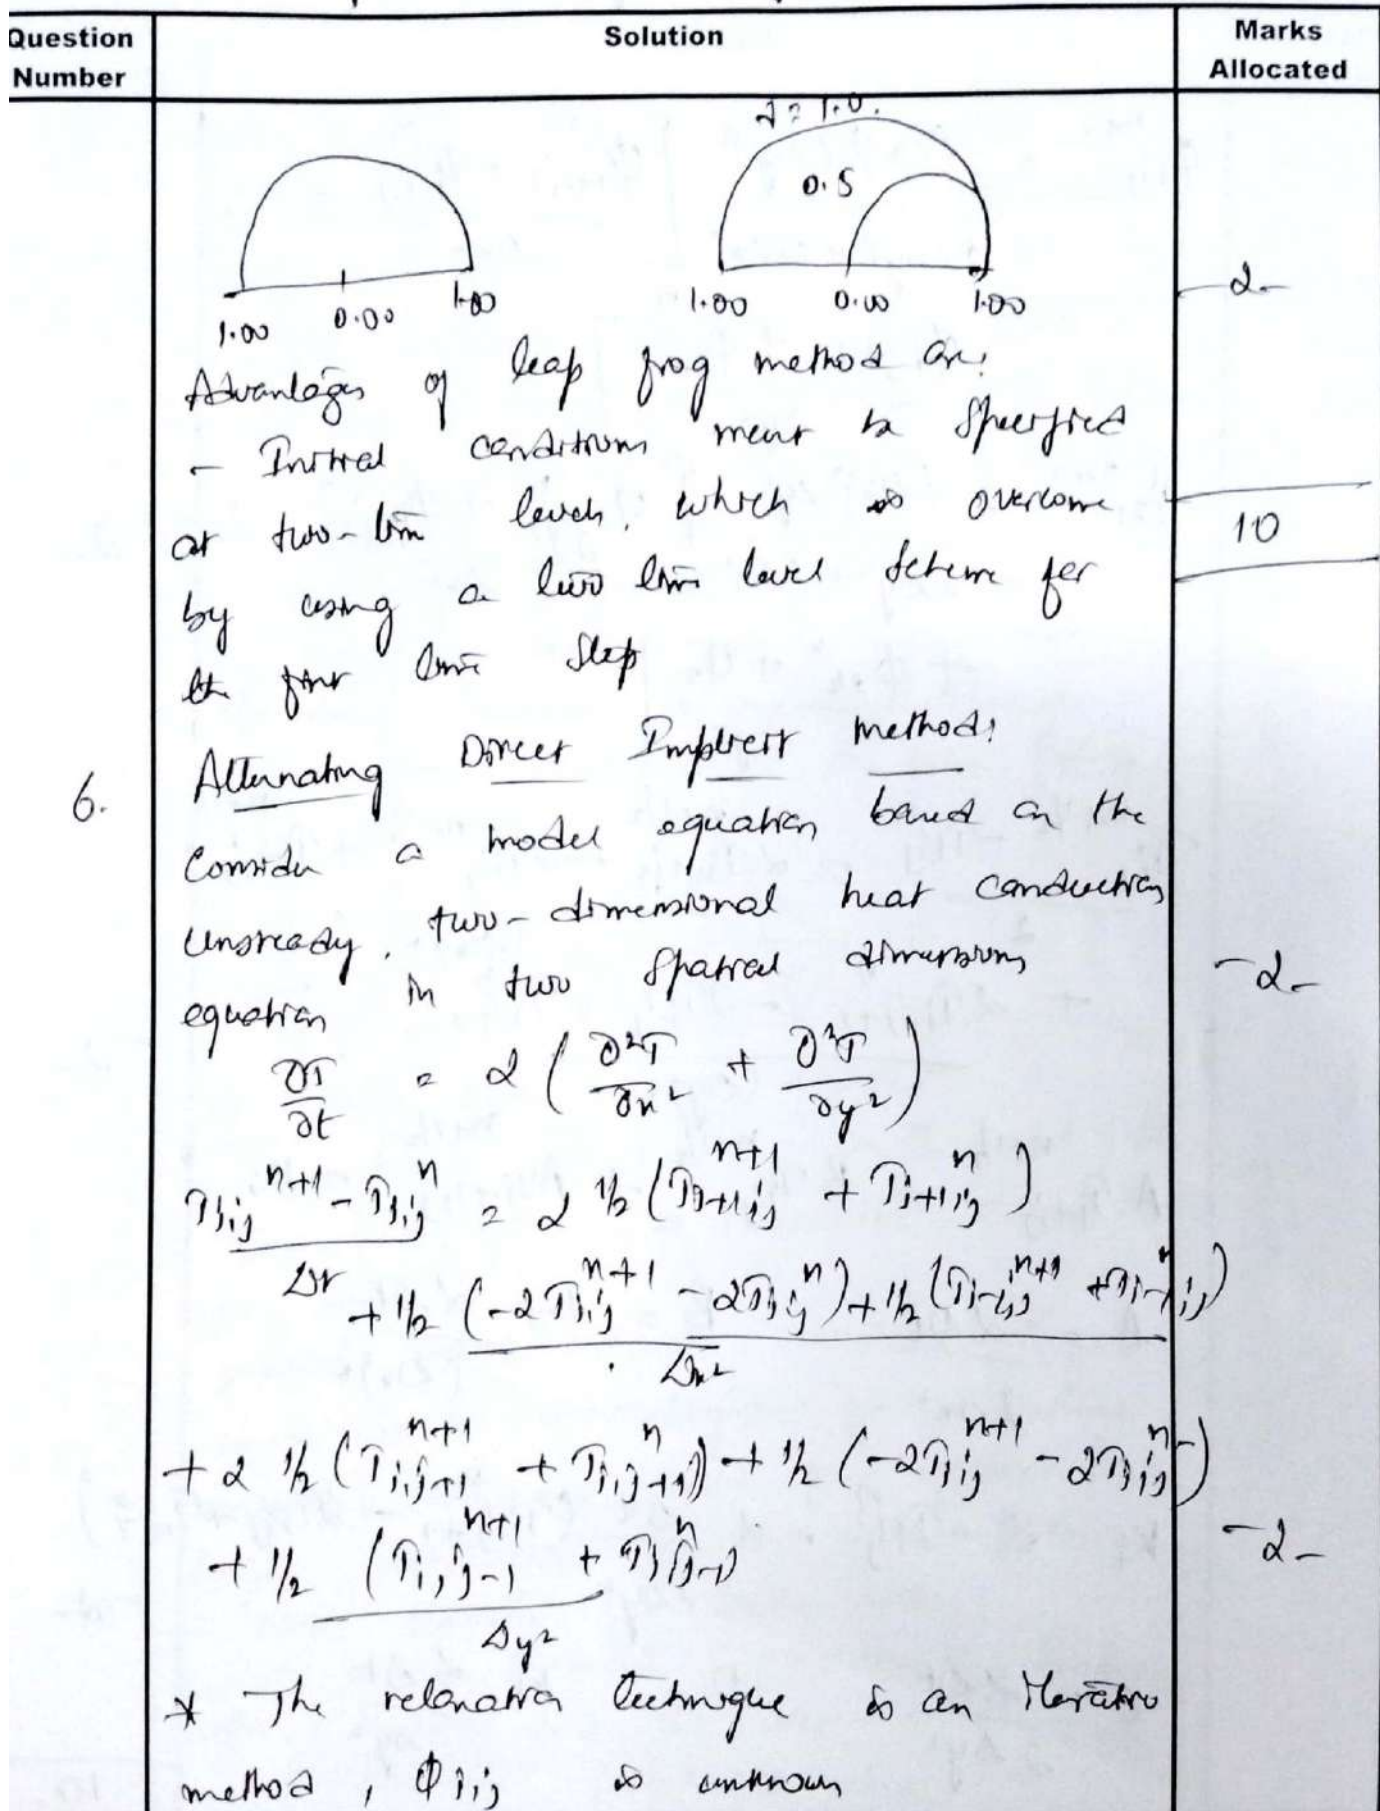 Question Number
Solution
Marks Allocated
λ = 1.0.
0.5
1.00 0.00 1.00
1.00 0.00 1.00
-2-
Advantages of leap frog method are:
- Initial conditions must be specified
at two-time levels, which is overcome
10
by using a two time level scheme for
the first time step
6.
Alternating Direct Implicit method:
Consider a model equation based on the
unsteady, two-dimensional heat conduction
equation in two spatial dimensions
-2-
∂T/∂t = α (∂²T/∂x² + ∂²T/∂y²)
(T_{i,j}^{n+1} - T_{i,j}^{n})/Δt = α 1/2 (T_{i+1,j}^{n+1} + T_{i+1,j}^{n})
+ 1/2 (-2T_{i,j}^{n+1} - 2T_{i,j}^{n}) + 1/2 (T_{i-1,j}^{n+1} + T_{i-1,j}^{n})
Δx²
+ α 1/2 (T_{i,j+1}^{n+1} + T_{i,j+1}^{n}) + 1/2 (-2T_{i,j}^{n+1} - 2T_{i,j}^{n})
+ 1/2 (T_{i,j-1}^{n+1} + T_{i,j-1}^{n})
-2-
Δy²
* The relaxation technique is an iterative
method, Φ_{i,j} is unknown